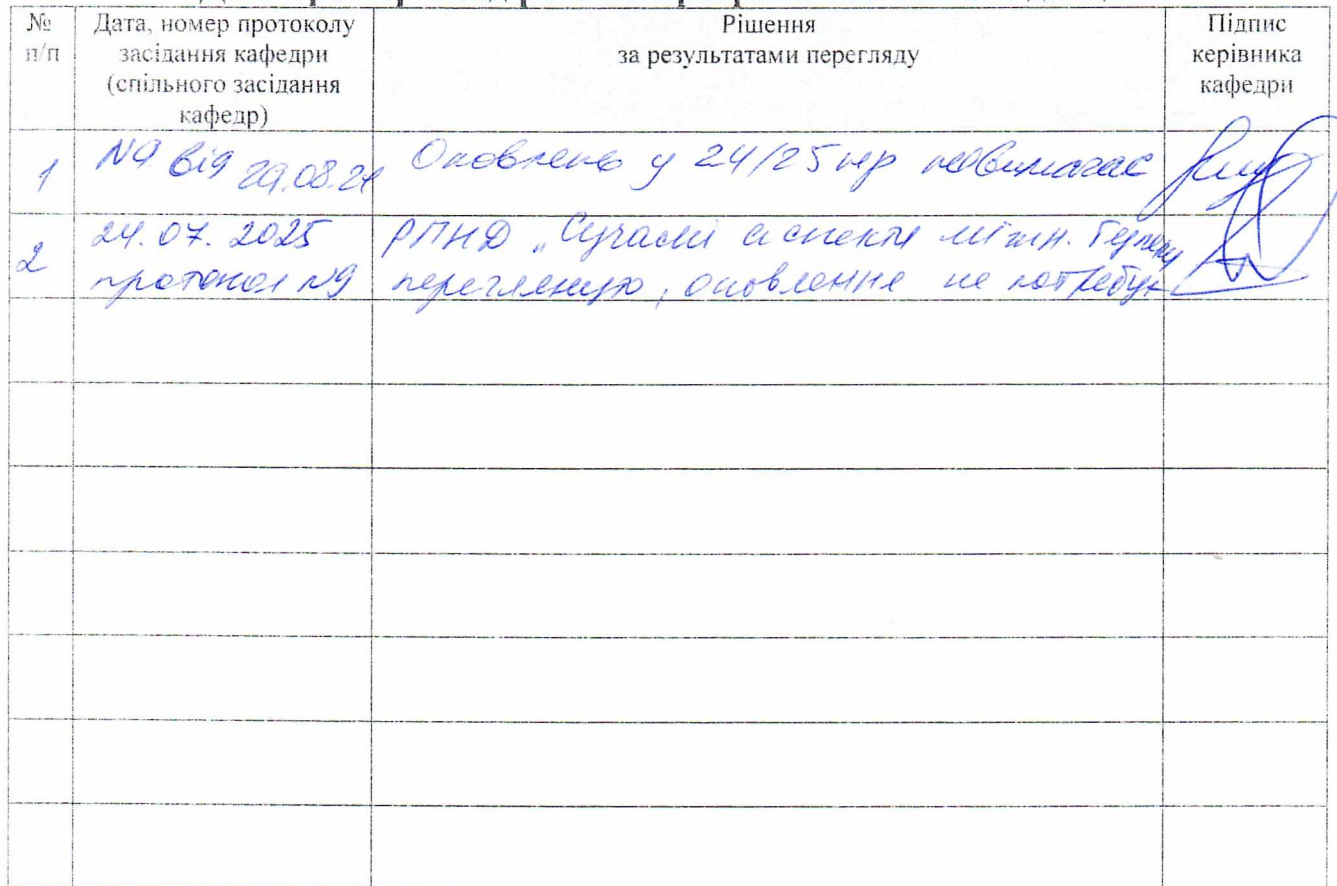 №
п/п
Дата, номер протоколу
засідання кафедри
(спільного засідання
кафедр)
Рішення
за результатами перегляду
Підпис
керівника
кафедри
1 №9 від 29.08.24 Оновлено у 24/25 нр не вимагає
2 24.07.2025 РПНД „Сучасні аспекти міжн.
протокол №9 переглянуто, оновлення не потребує